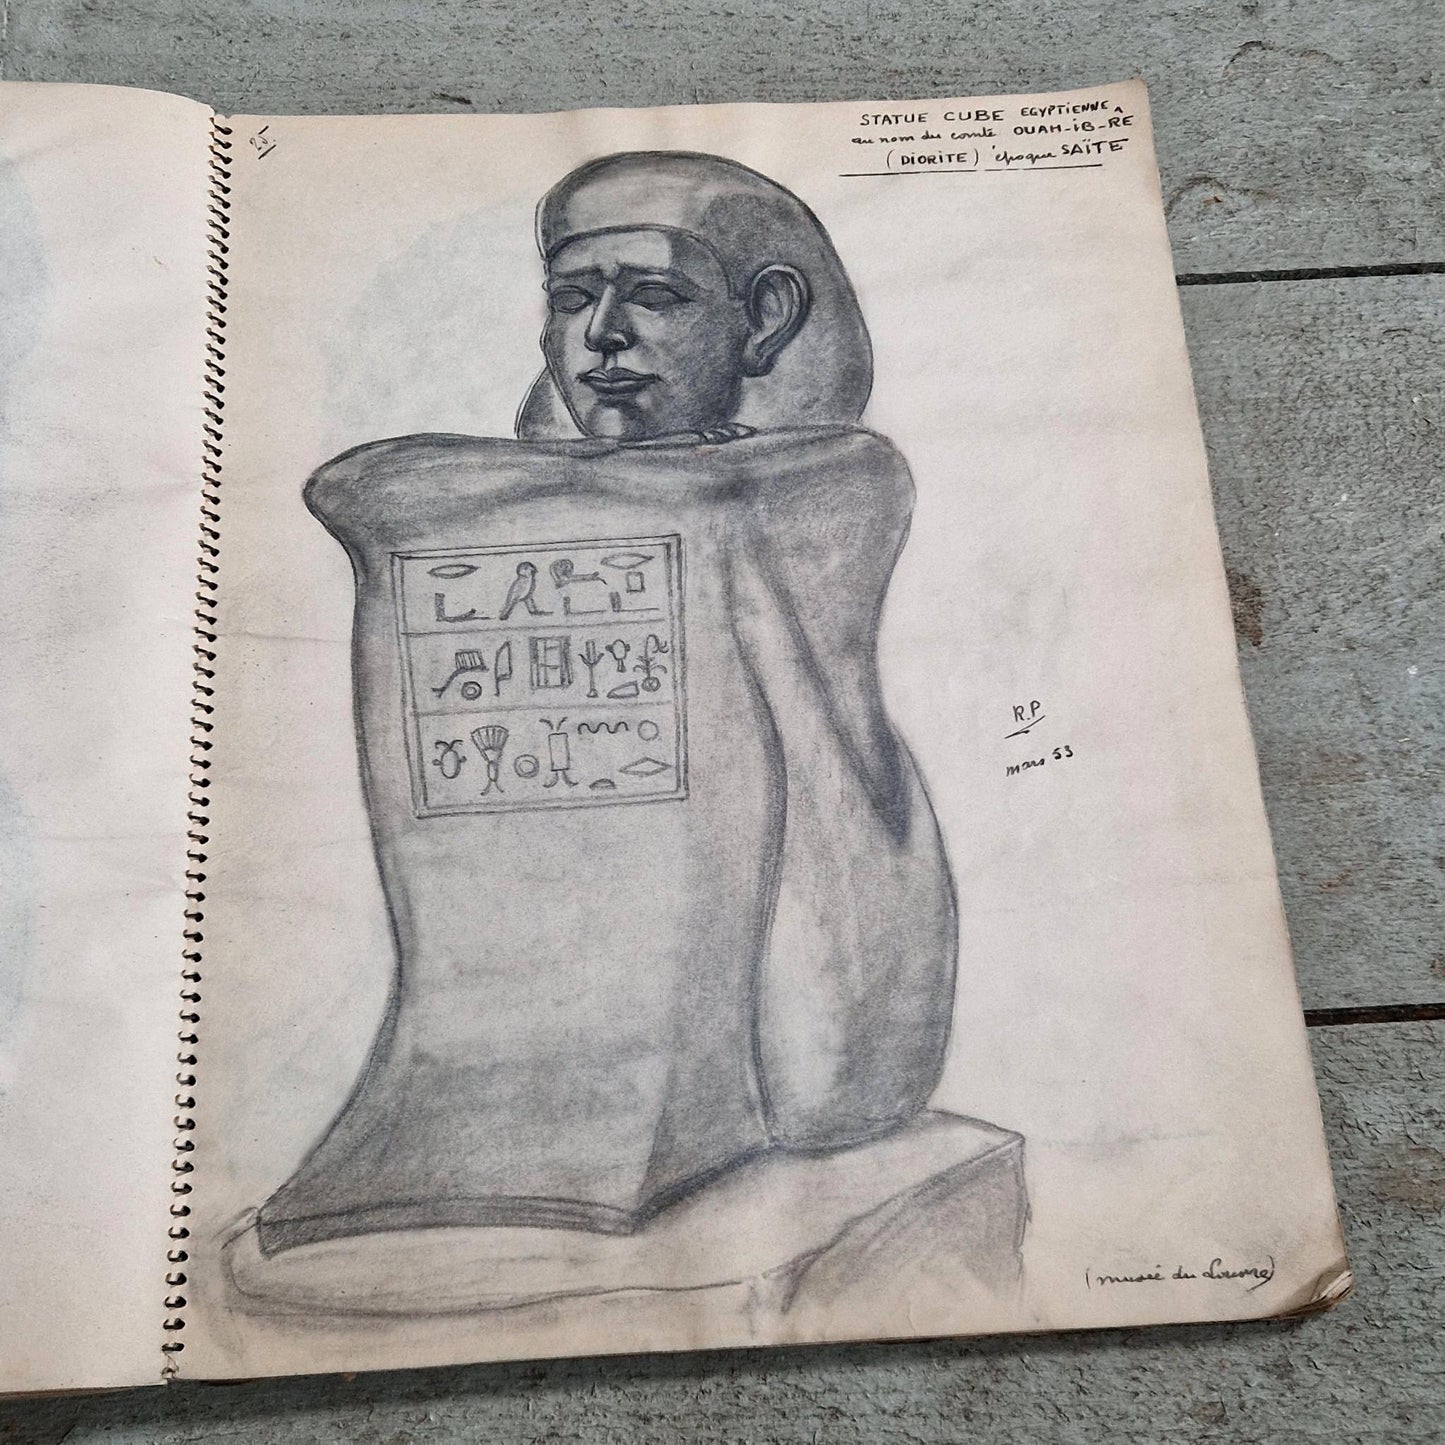 25
STATUE CUBE EGYPTIENNE
au nom du comte OUAH-IB-RE
(DIORITE) époque SAÏTE
R.P
mars 53
(musée du Louvre)